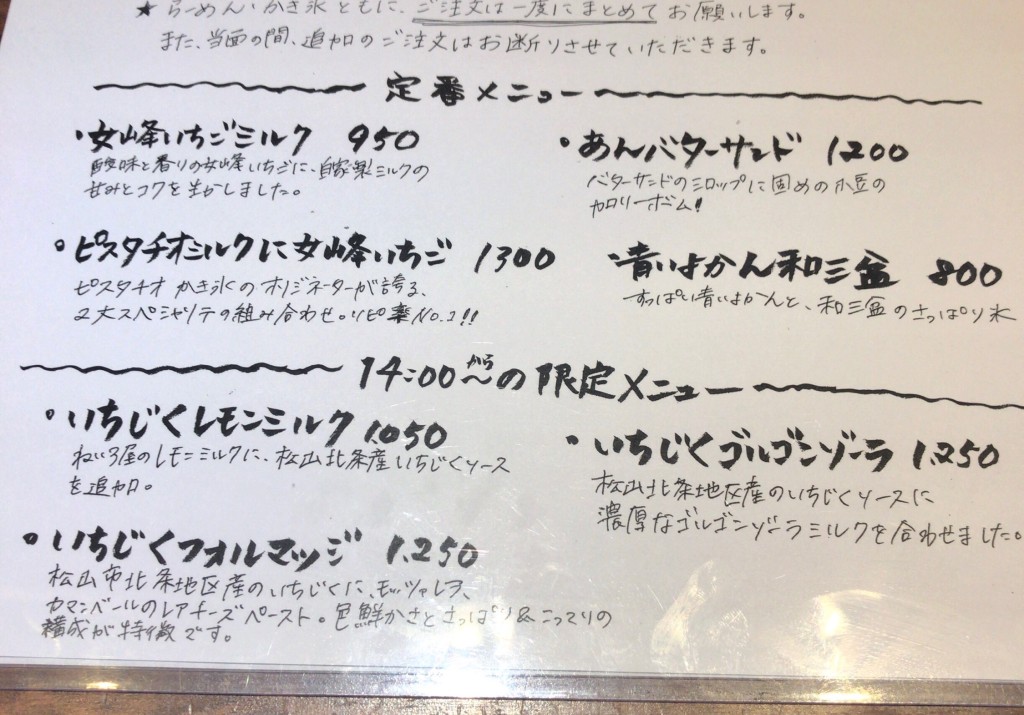 ★ らーめん・かき氷ともに、ご注文は一度にまとめてお願いします。
また、当面の間、追加のご注文はお断りさせていただきます。
定番メニュー
・女峰いちごミルク 950
酸味と香りの女峰いちごに、自家製ミルクの
甘みとコクを生かしました。
・あんバターサンド 1200
バターサンドのシロップに固めの小豆の
カロリーボム!!
・ピスタチオミルクに女峰いちご 1300
ピスタチオかき氷のオリジネーターが誇る、
2大スペシャリテの組み合わせ。リピ率No.1!!
・青いよかん和三盆 800
すっぱい青いよかんと、和三盆のさっぱり氷
14:00〜からの限定メニュー
・いちじくレモンミルク 1,050
ねいろ屋のレモンミルクに、松山北条産いちじくソース
を追加。
・いちじくゴルゴンゾーラ 1,250
松山北条地区産のいちじくソースに
濃厚なゴルゴンゾーラミルクを合わせました。
・いちじくフォルマッジ 1,250
松山市北条地区産のいちじくに、モッツァレラ、
カマンベールのレアチーズペースト。色鮮かさとさっぱり&こってりの
構成が特徴です。